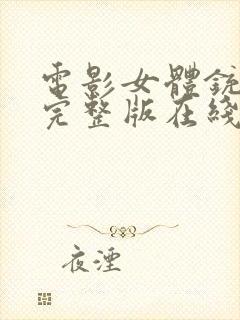 電影女體銃
完整版在綫
夜湮